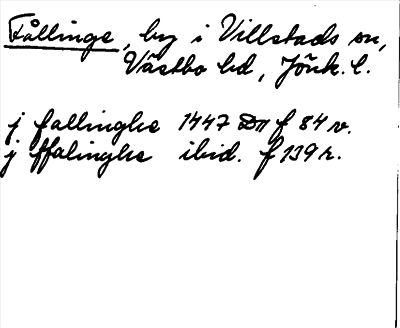 Fållinge, by i Villstads sn,
Västbo hd, Jönk. l.
j fallinghe 1447 Dn f 84 v.
j ffalinghe ibid. f 139 r.